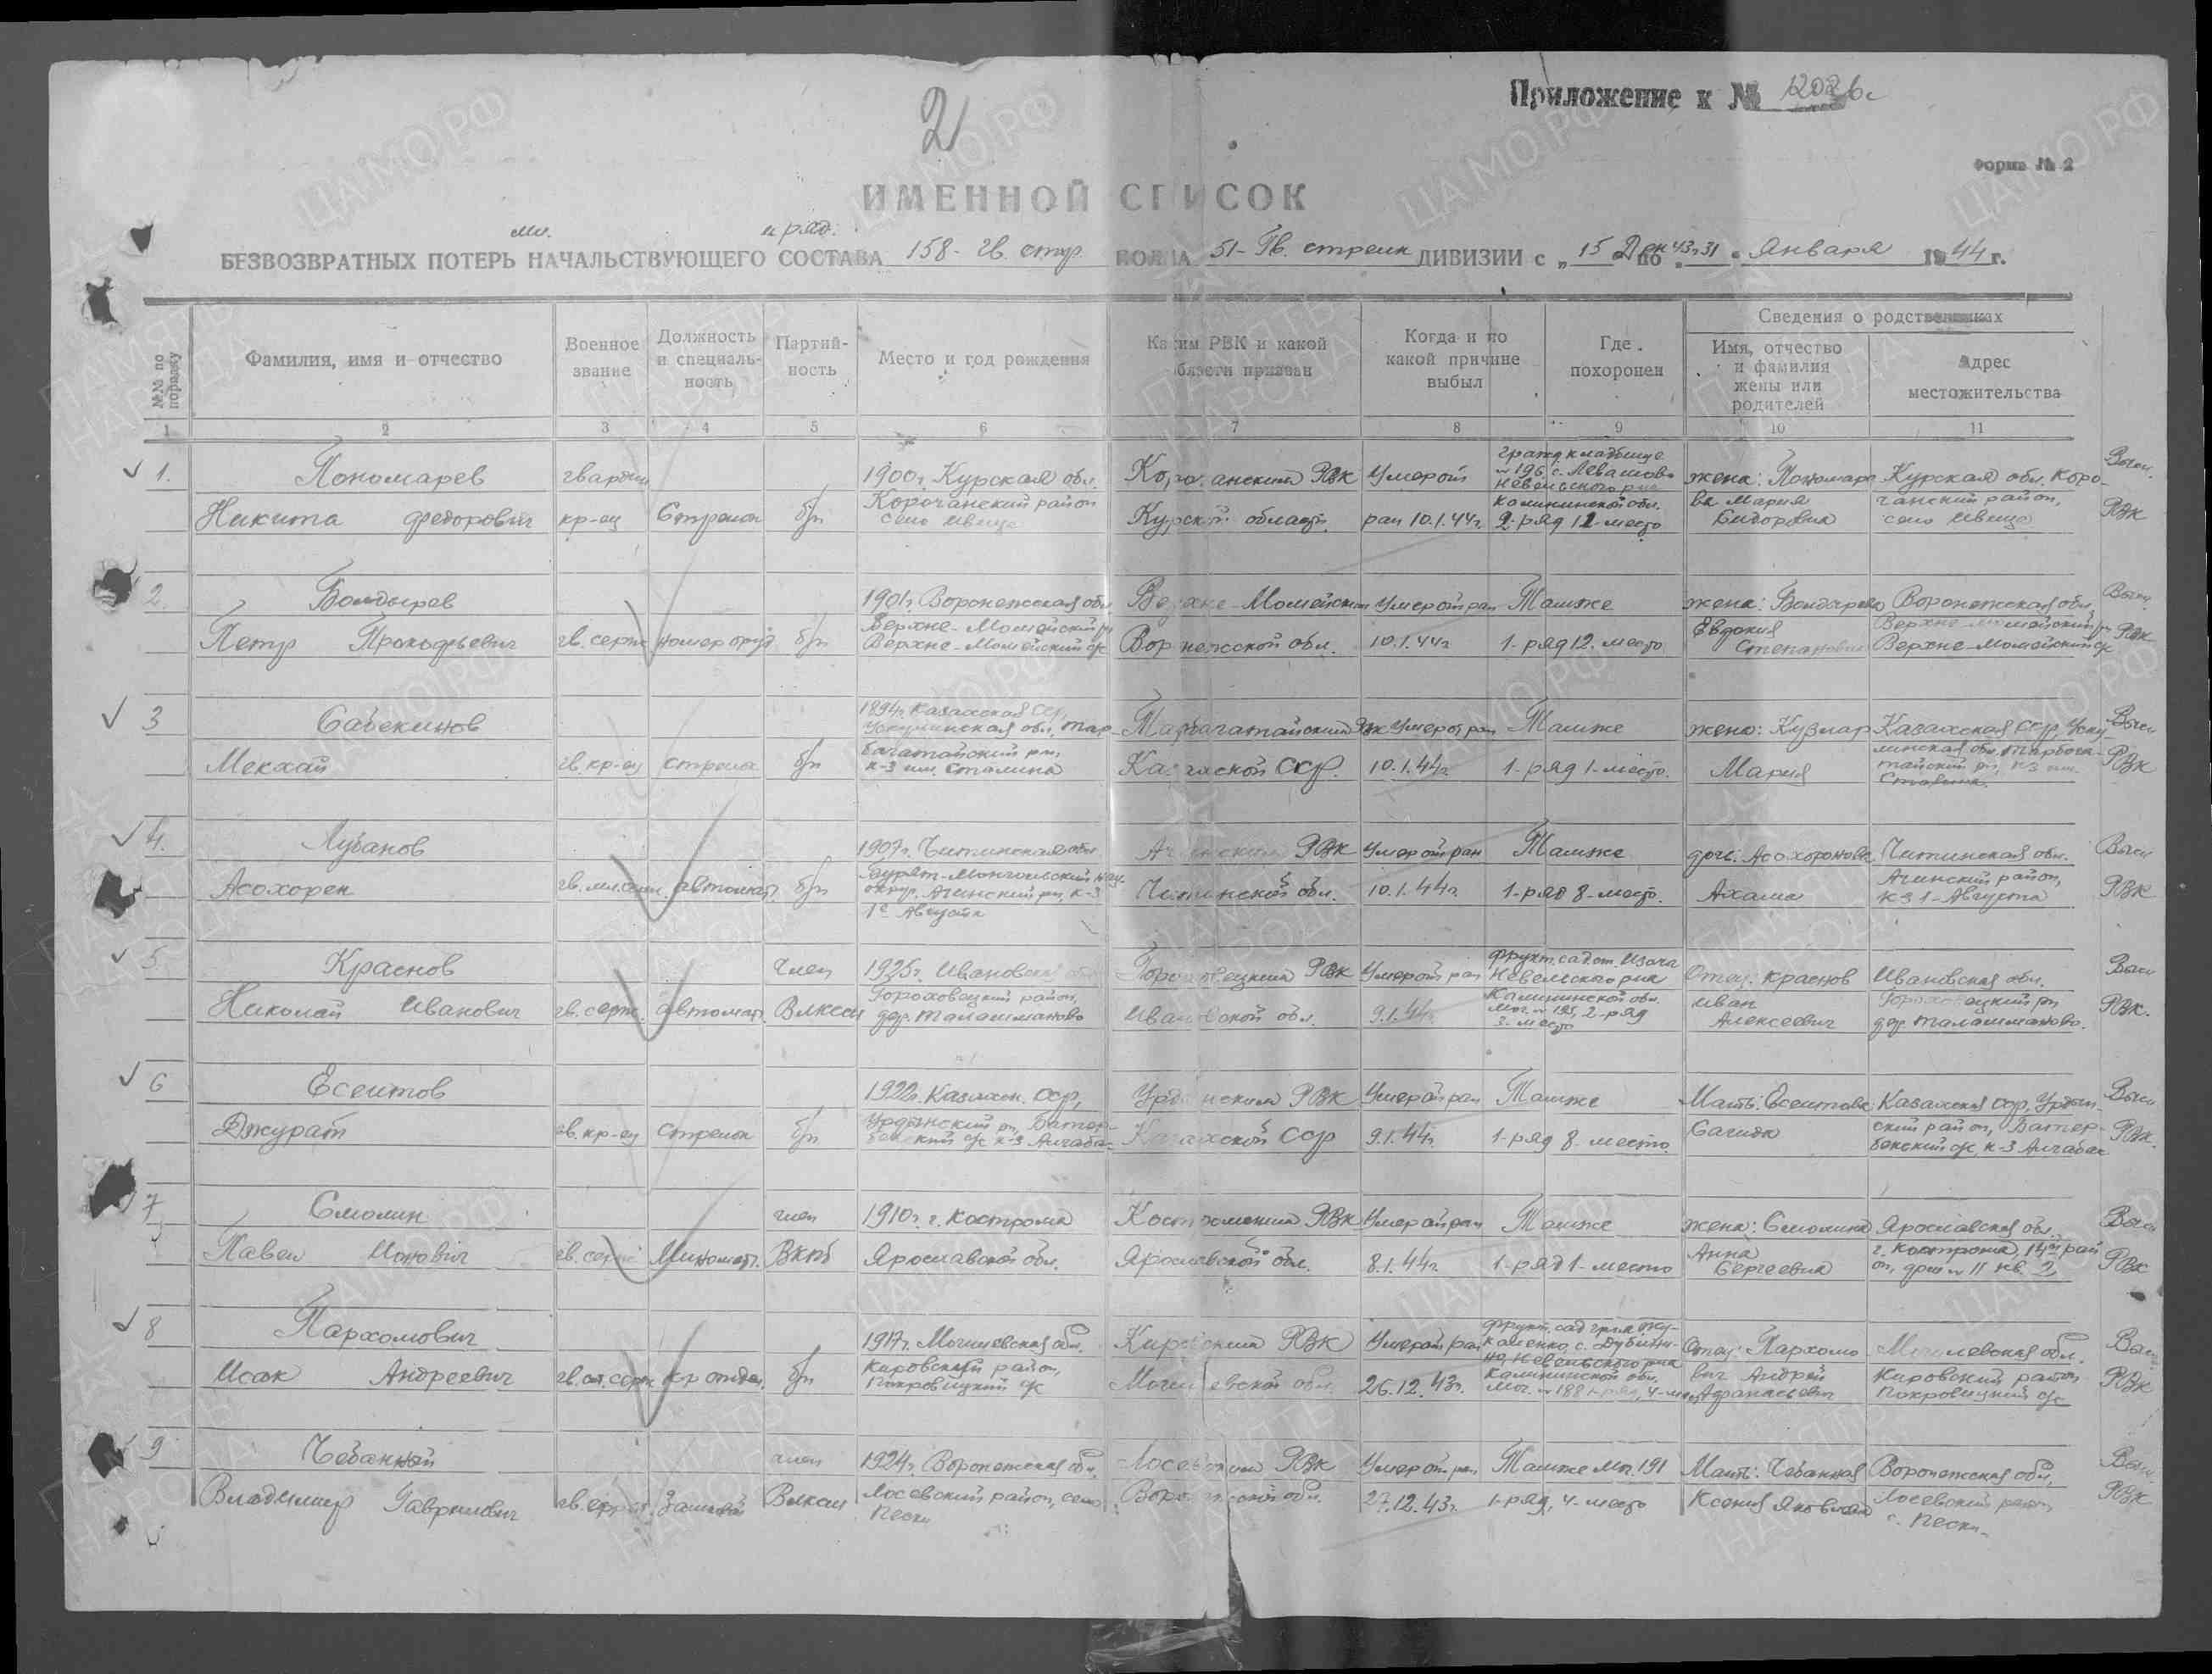 Приложение к № 1202 бс
2
Форма № 2
ИМЕННОЙ СПИСОК
мл. и ряд.
БЕЗВОЗВРАТНЫХ ПОТЕРЬ НАЧАЛЬСТВУЮЩЕГО СОСТАВА 158- гв. стр. ПОЛКА 51- Гв. стрелк ДИВИЗИИ с „15 Дек 43г. по 31 " Января 1944 г.
№№ по порядку
Фамилия, имя и отчество
Военное звание
Должность и специальность
Партийность
Место и год рождения
Каким РВК и какой области призван
Когда и по какой причине выбыл
Где похоронен
Сведения о родственниках
Имя, отчество и фамилия жены или родителей
Адрес местожительства
1 2 3 4 5 6 7 8 9 10 11
1. Пономарев гвардии 1900г. Курская обл. Корочанским РВК Умер от гражд. кладбище №196 с. Левашово Невельского р-на жена: Пономаре Курская обл. Коро-
Никита Федорович кр-ец Стрелок б/п Корочанский район село Ивица Курской области. ран 10.1.44г. Калининской обл. 2-ряд 12 место ва Мария Сидоровна чанский район, село Ивица РВК
2. Болдырев 1901г. Воронежская обл. Верхне-Мамонским Умер от ран Там же жена: Болдырева Воронежская обл.
Петр Прокофьевич гв. серж. номер оруд. б/п Воронежской обл. 10.1.44г. 1-ряд 12. место Евдокия Степановна РВК
3 Сабекинов 1894г. Казахская ССР Тарбагатайский РВК Умер от ран Там же жена: Кузпар Казахская ССР
Мекхай гв. кр-ец стрелок б/п багатайский р-н, к-з им. Сталина Казахской ССР. 10.1.44г. 1-ряд 1-место. Мария тайский р-н, к-з им. Сталина РВК
4. Лубанов 1907г. Читинская обл. Агинским РВК Умер от ран Там же дочь: Асохоронова Читинская обл.
Асохорен гв. мл. серж. автомат. б/п Бурят-Монгольский нац. округ. Агинский р-н, к-з 1е Августа Читинской обл. 10.1.44г. 1-ряд 8-место. Ахама Агинский район, к-з 1-Августа РВК
5 Краснов член 1925г. Ивановская обл. Гороховецким РВК Умер от ран фрукт. сад Невельского р-на Отец: Краснов Ивановская обл.
Николай Иванович гв. серж. автомат. ВЛКСМ Гороховецкий район, дер. Талашманово Ивановской обл. 9.1.44г. Калининской обл. мог. №195, 2-ряд 3-место Иван Алексеевич Гороховецкий р-н дер. Талашманово. РВК.
6 Есентов 1922г. Казахск. ССР, Урдинским РВК Умер от ран Там же Мать: Есентова Казахская ССР, Урдин-
Джурат гв. кр-ец стрелок б/п Казахской ССР 9.1.44г. 1-ряд 8 место. Сагида ский район, РВК.
7 Смолин член 1910г. г. Кострома Костромским РВК Умер от ран Там же жена: Смолина Ярославская обл.
Павел гв. серж. Миномет. ВКПб Ярославской обл. Ярославской обл. 8.1.44г. 1-ряд 1-место Анна Сергеевна г. Кострома, дом № 11 кв. 2 РВК
8 Пархомович 1917г. Могилевская обл. Кировским РВК Умер от ран фрукт. сад Невельского р-на Отец: Пархомо Могилевская обл.
Исак Андреевич гв. ст. серж. к-р отдел. б/п Кировский район, Покровицкий с/с Могилевской обл. 26.12.43г. Калининской обл. мог. №188 1-ряд, 4-место вич Андрей Афанасьевич Кировский район Покровицкий с/с РВК
9 Чебанный член 1924г. Воронежская обл. Лосевским РВК Умер от ран Там же мог. 191 Мать: Чебанная Воронежская обл.
Владимир Гаврилович гв. ефрет. ВЛКСМ Лосевский район, село Пески Воронежской обл. 27.12.43г. 1-ряд, 4-место Ксения Яковлевна Лосевский район с. Пески РВК